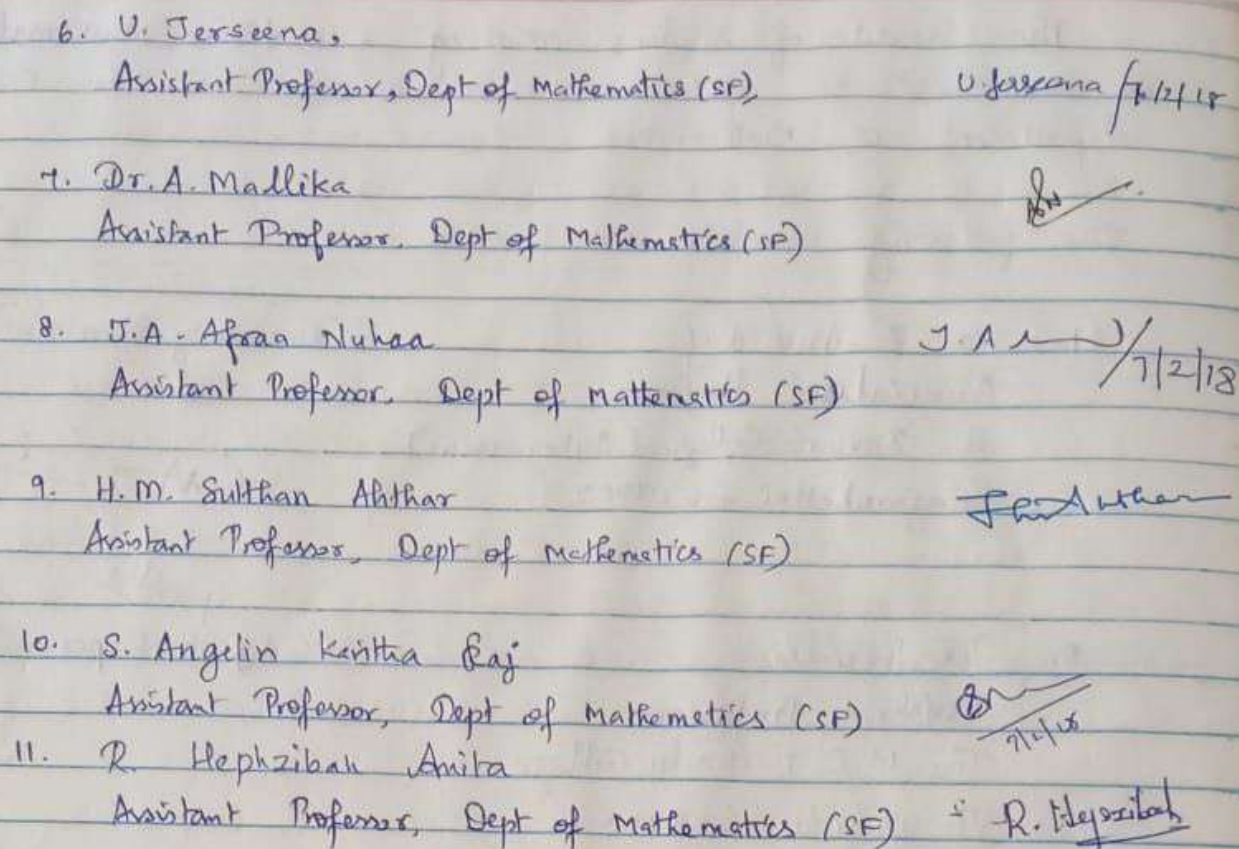 6. U. Jerseena,
Assistant Professor, Dept of Mathematics (SF), U. Jaseena 7/2/18
7. Dr. A. Mallika
Assistant Professor, Dept of Mathematics (SF)
8. J.A. Afraa Nuhaa J.A
Assistant Professor, Dept of Mathematics (SF) 7/2/18
9. H.M. Sulthan Ahthar
Assistant Professor, Dept of Mathematics (SF)
10. S. Angelin Kavitha Raj
Assistant Professor, Dept of Mathematics (SF) 7/2/18
11. R. Hephzibah Anita
Assistant Professor, Dept of Mathematics (SF) R. Hepzibah